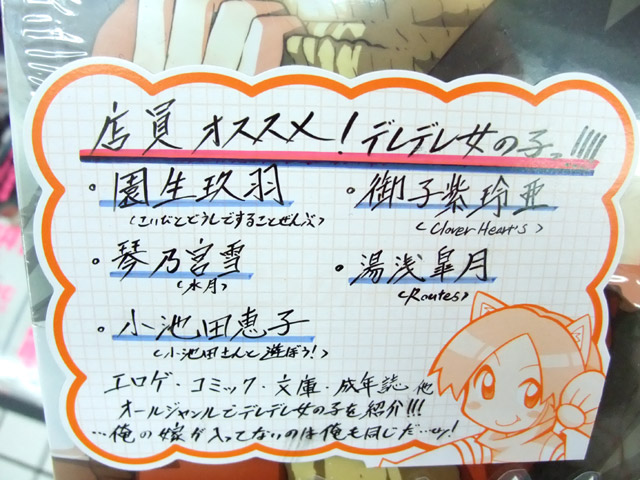 店員オススメ!デレデレ女の子っ!!!!
・園生玖羽
<こいびとどうしですることぜんぶ>
・御子紫玲亜
<Clover Heart's>
・琴乃宮雪
<水月>
・湯浅皐月
<Routes>
・小池田恵子
<小池田さんと遊ぼう!>
エロゲ・コミック・文庫・成年誌 他
オールジャンルでデレデレ女の子を紹介!!!
…俺の嫁が入ってないのは俺も同じだ…